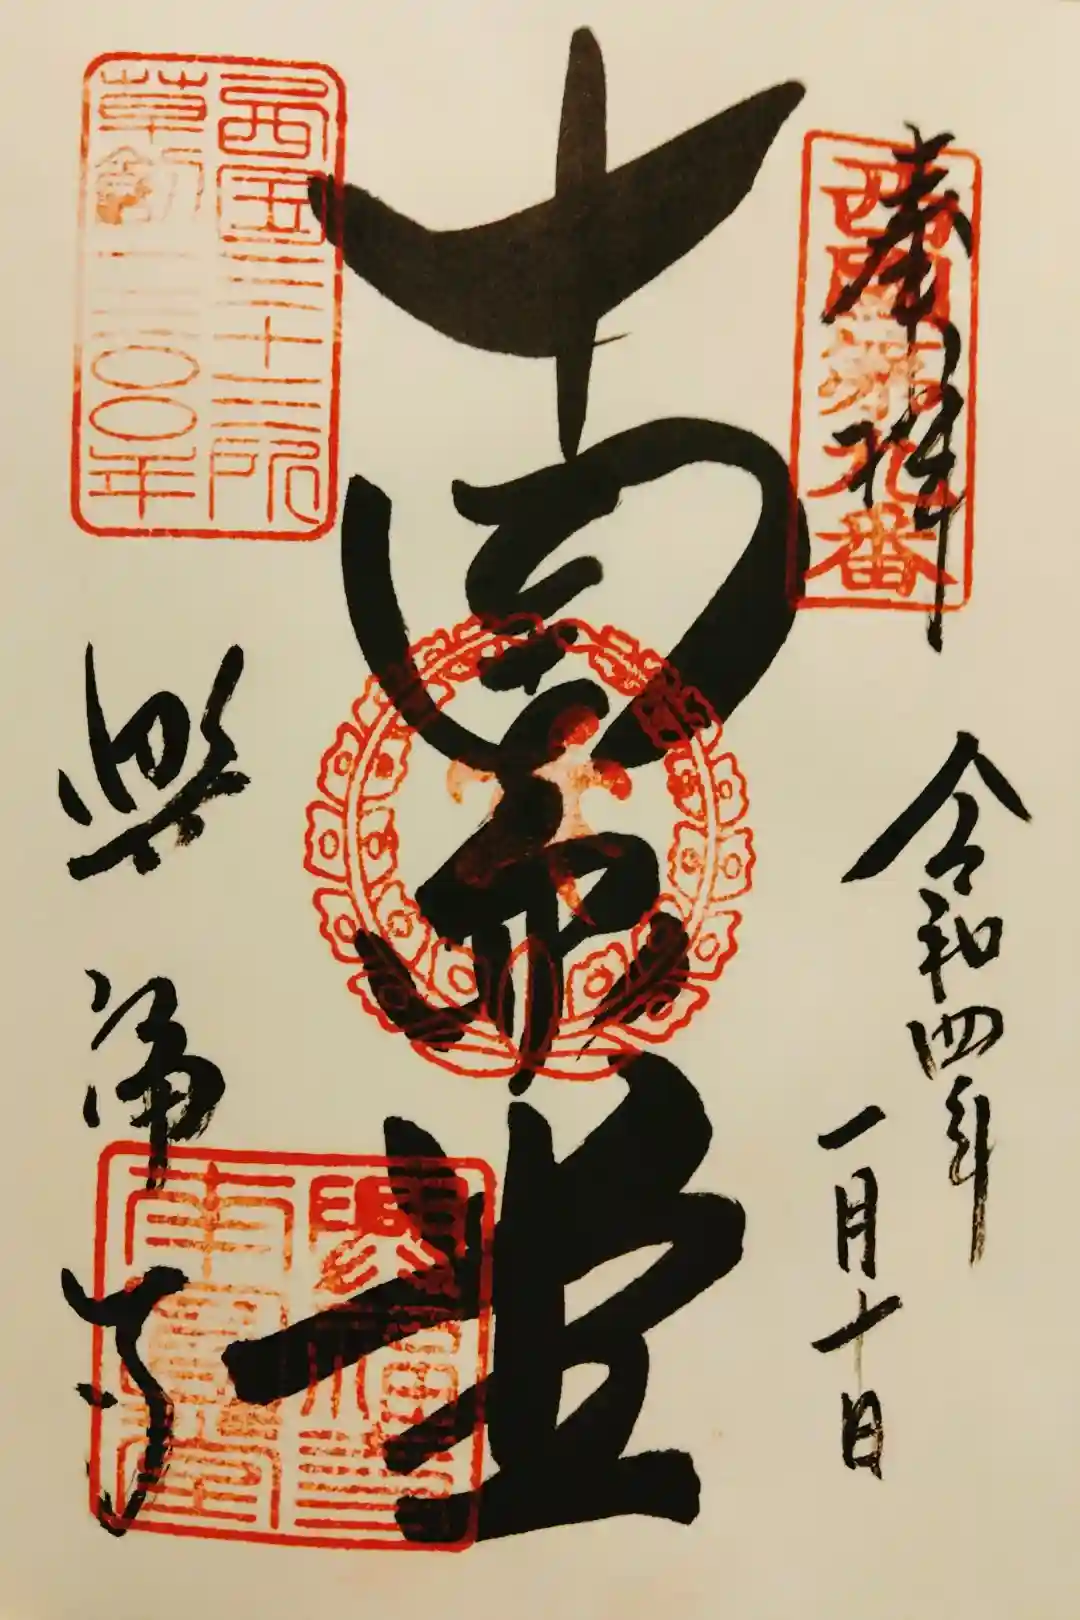 奉拝
西国第九番
令和四年
一月十日
南円堂
西国三十三所
草創一三〇〇年
興福寺
興福寺
南円堂